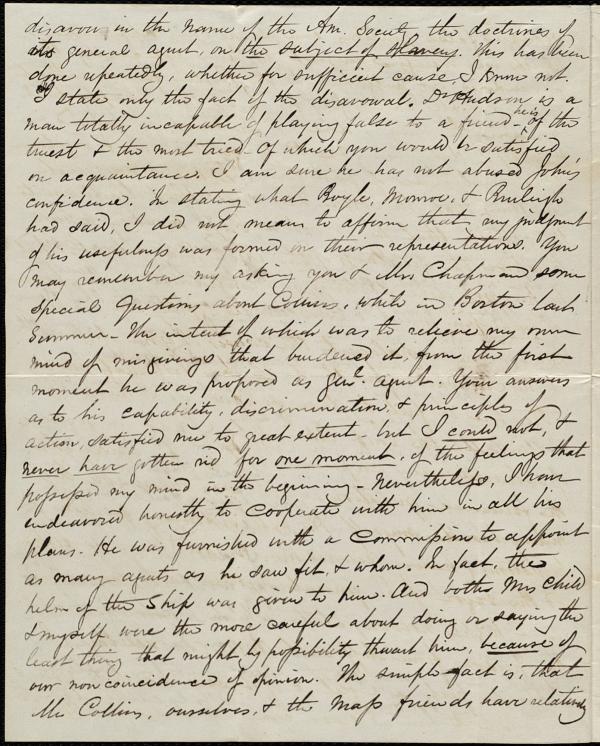 disavow in the name of the Am. Society the doctrines of
its general agent, on the subject of slavery. This has been
done repeatedly, whether for sufficient cause, I know not.
I state only the fact of the disavowal. Dr Hudson is a
man totally incapable of playing false to a friend - he is of the
truest & the most tried. Of which you would be satisfied
on acquaintance. I am sure he has not abused John's
confidence. In stating what Boyle, Monroe, & Burleigh
had said, I did not mean to affirm that my judgment
of his usefulness was formed on their representations. You
may remember my asking you & Mrs Chapman some
special questions about Collins, while in Boston last
Summer - The intent of which was to relieve my own
mind of misgivings that burdened it, from the first
moment he was proposed as genl. agent. Your answers
as to his capability, discrimination, & principles of
action, satisfied me to great extent - but I could not, &
never have gotten rid for one moment, of the feelings that
possessed my mind in the beginning - Nevertheless, I have
endeavored honestly to cooperate with him in all his
plans. He was furnished with a Commission to appoint
as many agents as he saw fit, & whom. In fact, the
helm of the Ship was given to him. And both Mrs Child
& myself were the more careful about doing or saying the
least thing that might by possibility thwart him, because of
our non coincidence of opinion. The simple fact is, that
Mr Collins, ourselves, & the Mass friends have relatively